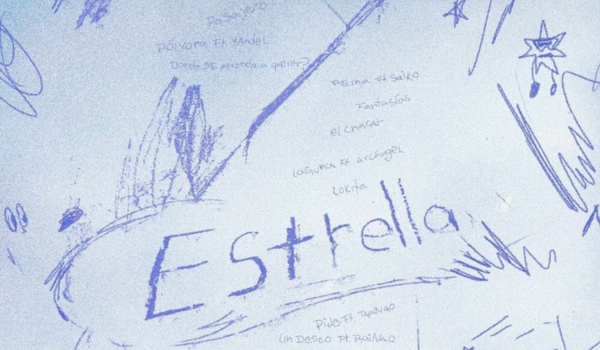 Pasajero
Pólvora Ft YANDEL
DONDE SE APRENDE A QUERER?
REINA Ft Saiko
Fantasías
el chacal
LAGUNA Ft arcángel
Lokita
Estrella
Pide Ft
Un Deseo Ft.